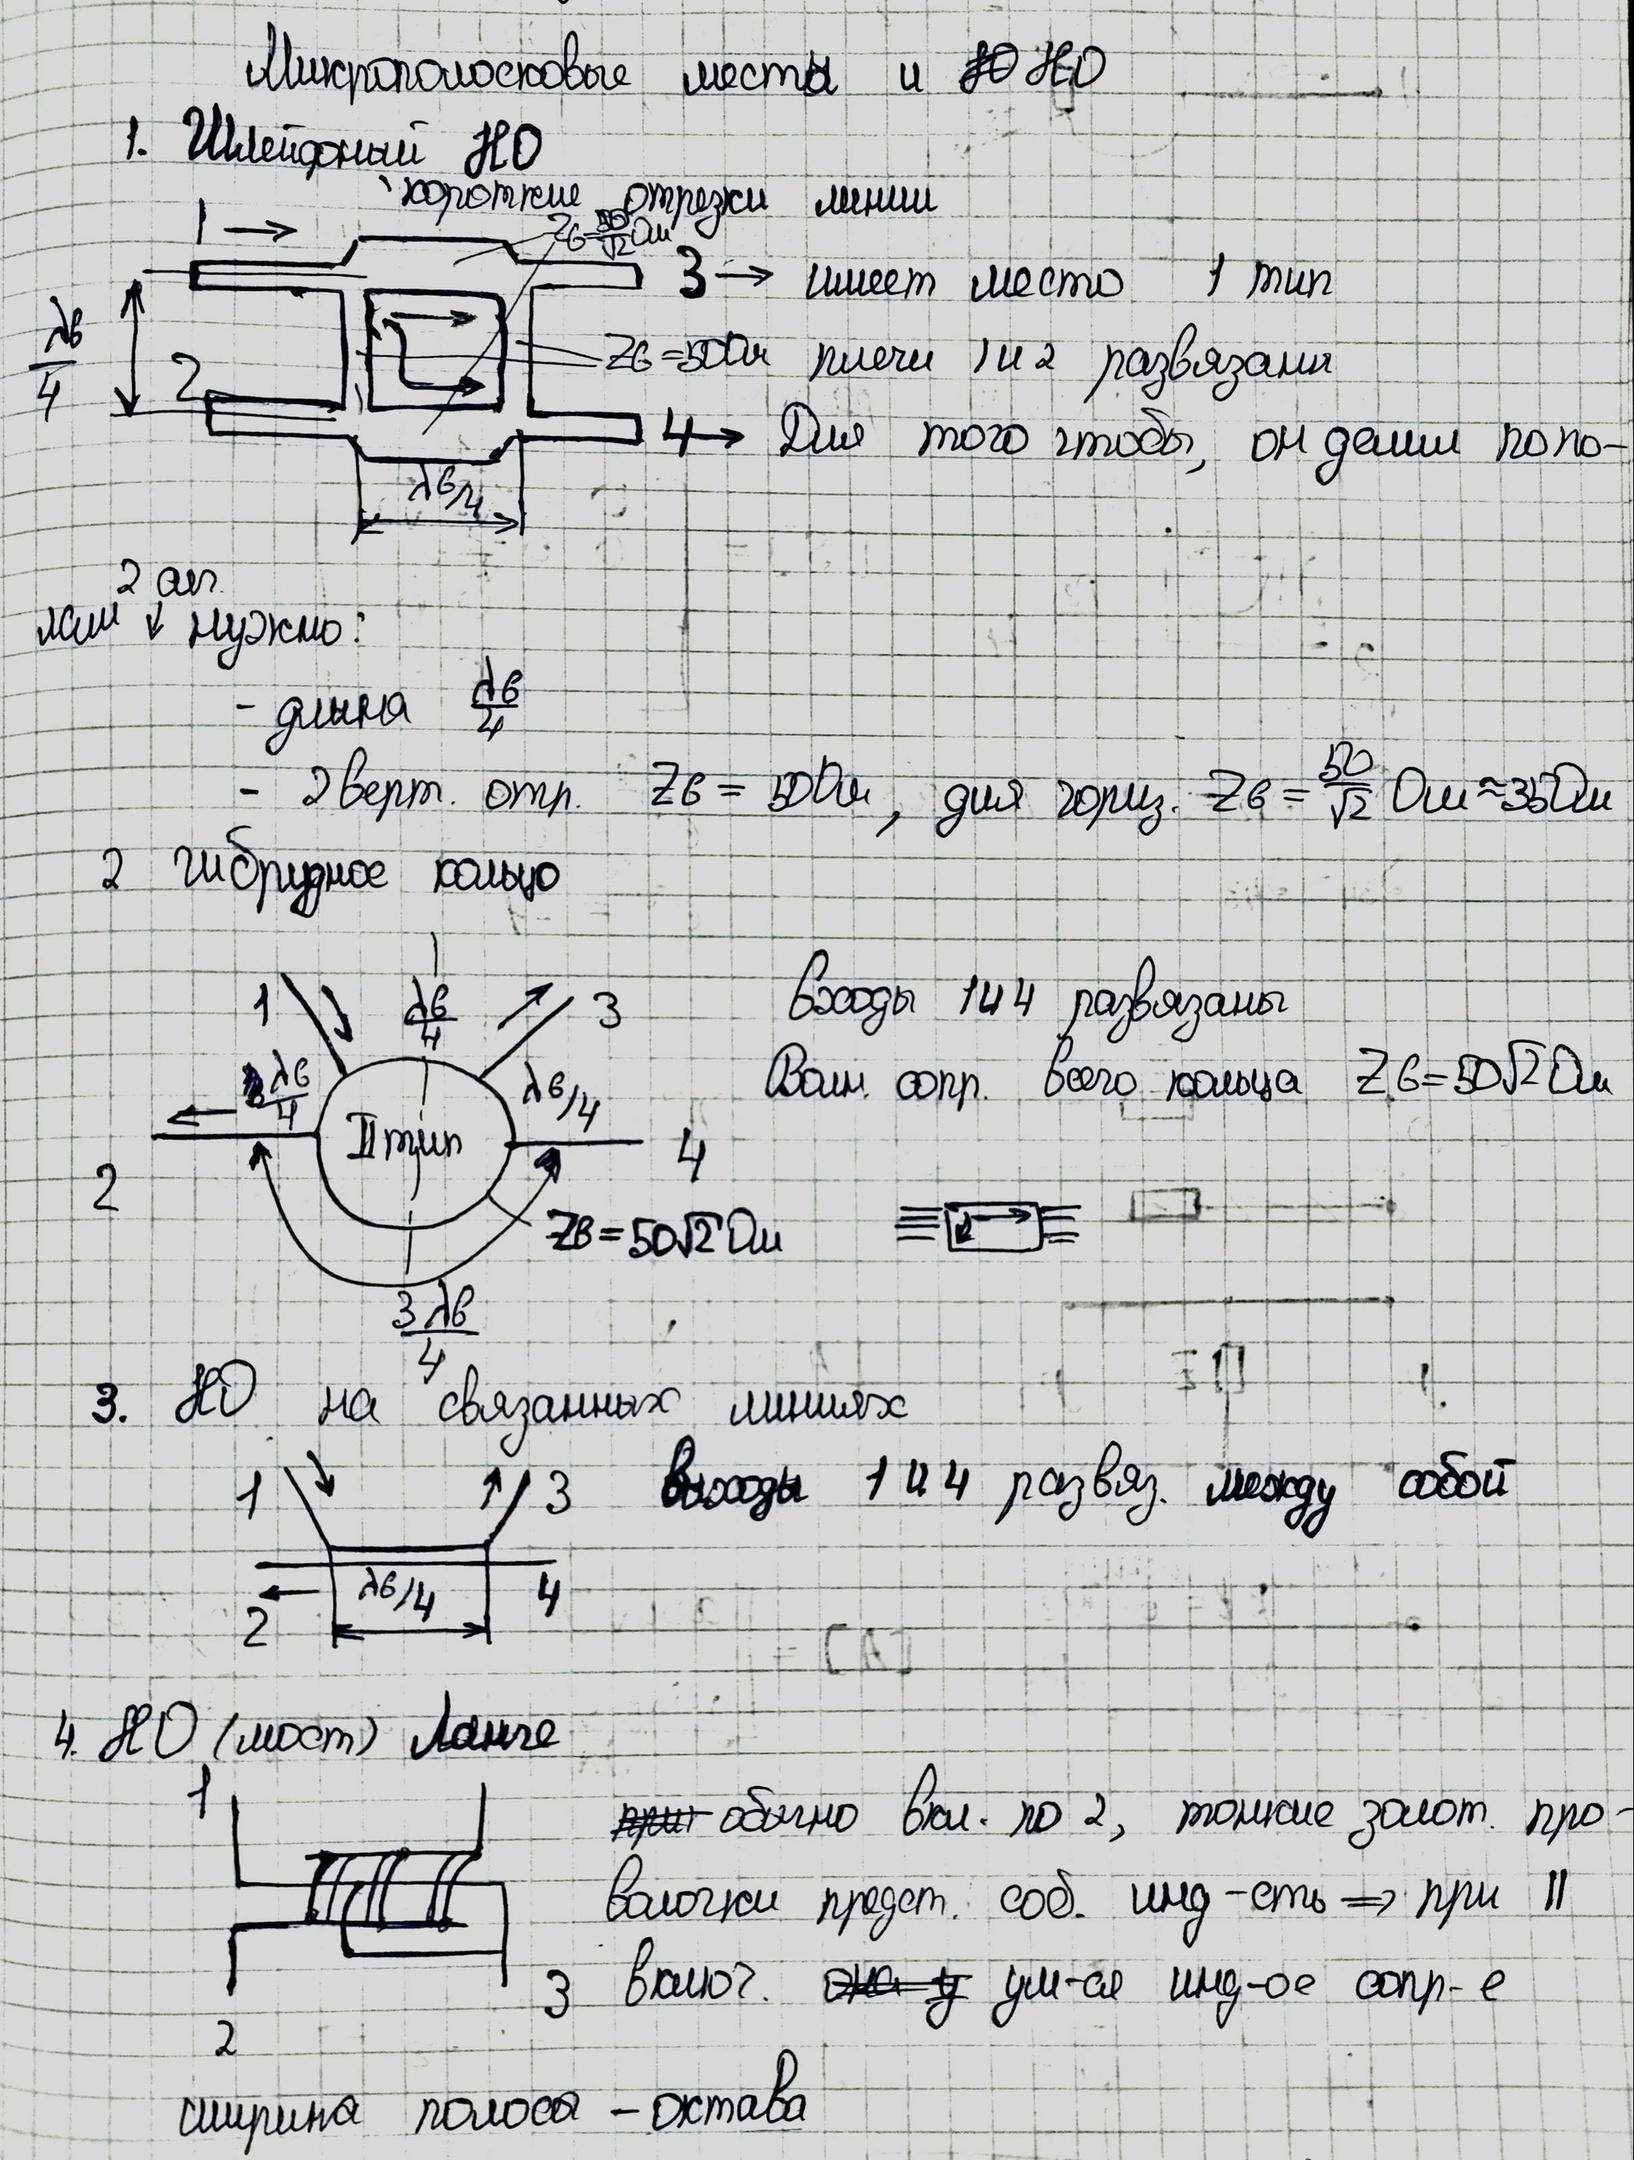 Микрополосковые мосты и НО
1. Шлейфный НО
короткие отрезки линии
1
Zв=50/√2 Ом
3 → имеет место 1 тип
λв/4
2
Zв=50Ом плечи 1 и 2 развязаны
4 → Для того чтобы, он делил попо-
λв/4
2 сиг.
лам ↓ нужно:
- длина λв/4
- 2 верт. отр. Zв = 50Ом, для гориз. Zв = 50/√2 Ом ≈ 35Ом
2 Гибридное кольцо
1 λв/4 3 Входы 1 и 4 развязаны
λв/4 λв/4 Волн. сопр. всего кольца Zв=50√2 Ом
II тип
2 4
Zв=50√2 Ом
3λв/4
3. НО на связанных линиях
1 3 выходы 1 и 4 развяз. между собой
λв/4
2 4
4. НО (мост) Ланге
1
обычно вкл. по 2, тонкие золот. про-
волочки предст. соб. инд-сть ⇒ при ||
3 включ. ум-ся инд-ое сопр-е
2
ширина полосы – октава